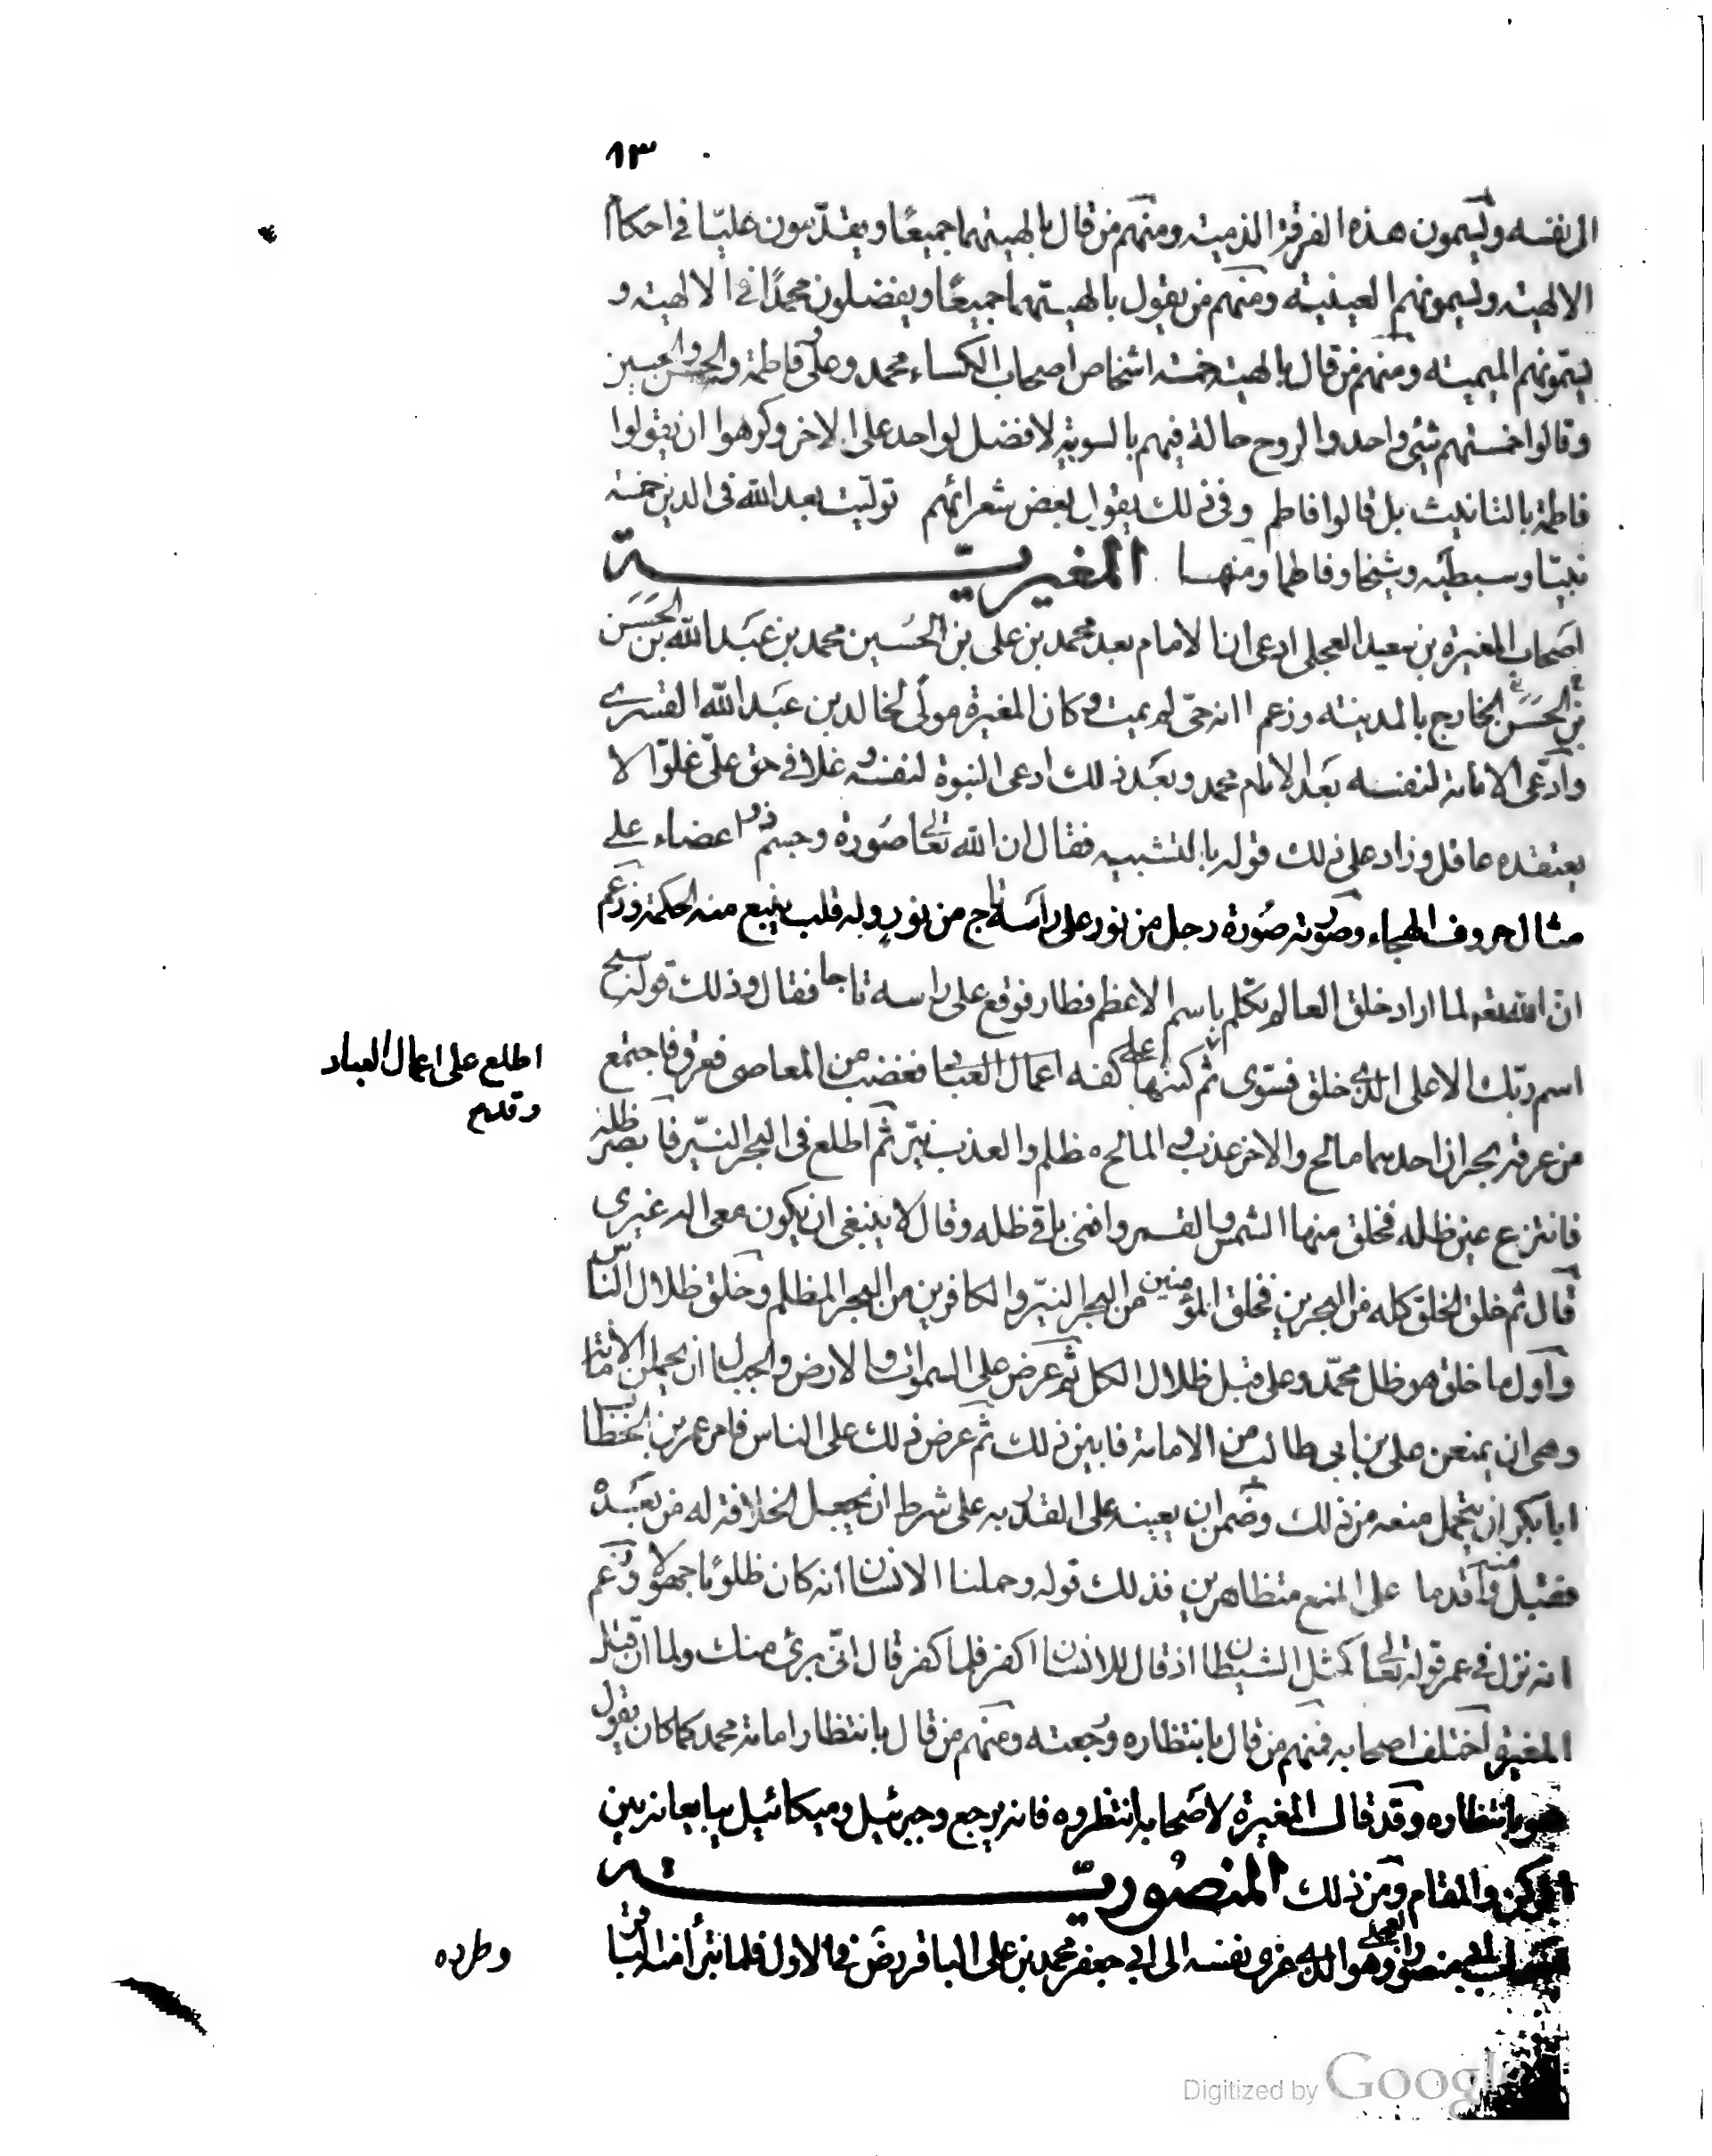 ٨٣
الى نفسه ويسمون هذه الفرقة الذمية ومنهم من قال بالهيتهما جميعًا ويقدّمون عليّا في احكام
الالهية ويسمونهم العينية ومنهم من يقول بالهيتهما جميعًا ويفضلون محمدًا في الالهية و
يسمونهم الميمية ومنهم من قال بالهية خمسة اشخاص اصحاب الكساء محمد وعلى وفاطمة والحسن والحسين
وقالوا خمستهم شئ واحد والروح حالة فيهم بالسوية لا فضل لواحد على الاخر وكرهوا ان يقولوا
فاطمة بالتانيث بل قالوا فاطم وفى ذلك يقول بعض شعرائهم توليت بعد الله فى الدين خمسة
نبيّا وسبطيه وشيخا وفاطما ومنهـا المغيريـــة
اصحاب المغيرة بن سعيد العجلى ادعى ان الامام بعد محمد بن على بن الحسين محمد بن عبد الله بن الحسن
بن الحسن الخارج بالمدينة وزعم انه حىّ لم يمت وكان المغيرة مولى لخالد بن عبد الله القسرے
وادّعى الامامة لنفسه بعد الامام محمد وبعد ذلك ادعى النبوة لنفسه وغلا فى حق علىّ غلوّا لا
يعتقده عاقل وزاد على ذلك قوله بالتشبيه فقال ان الله تعالى صورة وجسم ذو اعضاء على
مثال حروف الهجاء وصورته صورة رجل من نور على راسه تاج من نور وله قلب ينبع منه الحكمة وزعم
انّ الله تعالى لما اراد خلق العالم تكلّم باسم الاعظم فطار فوقع على راسه تاجا فقال وذلك قوله سبح
اسم ربّك الاعلى الذى خلق فسوّى ثم كتبها على كفه اعمال العباد فغضب من المعاصى فعرق فاجتمع
اطلع على اعمال العباد
وقدم
من عرقه بحران احدهما مالح والاخر عذب والمالح مظلم والعذب نيّر ثم اطلع فى البحر النيّر فابصر ظله
فانتزع عين ظله فخلق منها الشمس والقمر وافنى باقى ظله وقال لا ينبغى ان يكون معى اله غيرى
قال ثم خلق الخلق كله من البحرين فخلق المؤمنين من البحر النيّر والكافرين من البحر المظلم وخلق ظلال الناس
واول ما خلق هو ظل محمّد وعلى قبل ظلال الكل ثم عرض على السموات والارض والجبال ان يحملن الامانة
وهى ان يمنعن على بن ابى طالب من الامامة فابين ذلك ثم عرض ذلك على الناس فامر عمر بن الخطاب
ابا بكر ان يتحمل منعه من ذلك وضمن ان يعينه على الغدر به على شرط ان يجعل الخلافة له من بعده
فقبل منه واقدما على المنع متظاهرين فذلك قوله وحملنا الانسان انه كان ظلومًا جهولا وزعم
انه نزل فى عمر قوله تعالى كمثل الشيطان اذ قال للانسان اكفر فلما كفر قال انّى برئ منك ولما ان قتل
المغيرة اختلف اصحابه فمنهم من قال بانتظاره ورجعته ومنهم من قال بانتظار امامة محمد كما كان يقول
هو بانتظاره وقد قال المغيرة لاصحابه انتظروه فانه يرجع وجبرئيل وميكائيل يبايعانه بين
الركن والمقام ومن ذلك المنصوريـــة
اصحاب ابى منصور العجلى وهو الذى عزى نفسه الى ابى جعفر محمد بن على الباقر رضى فى الاول فلما تبرأ منه الباقر
وطرده
Digitized by Google